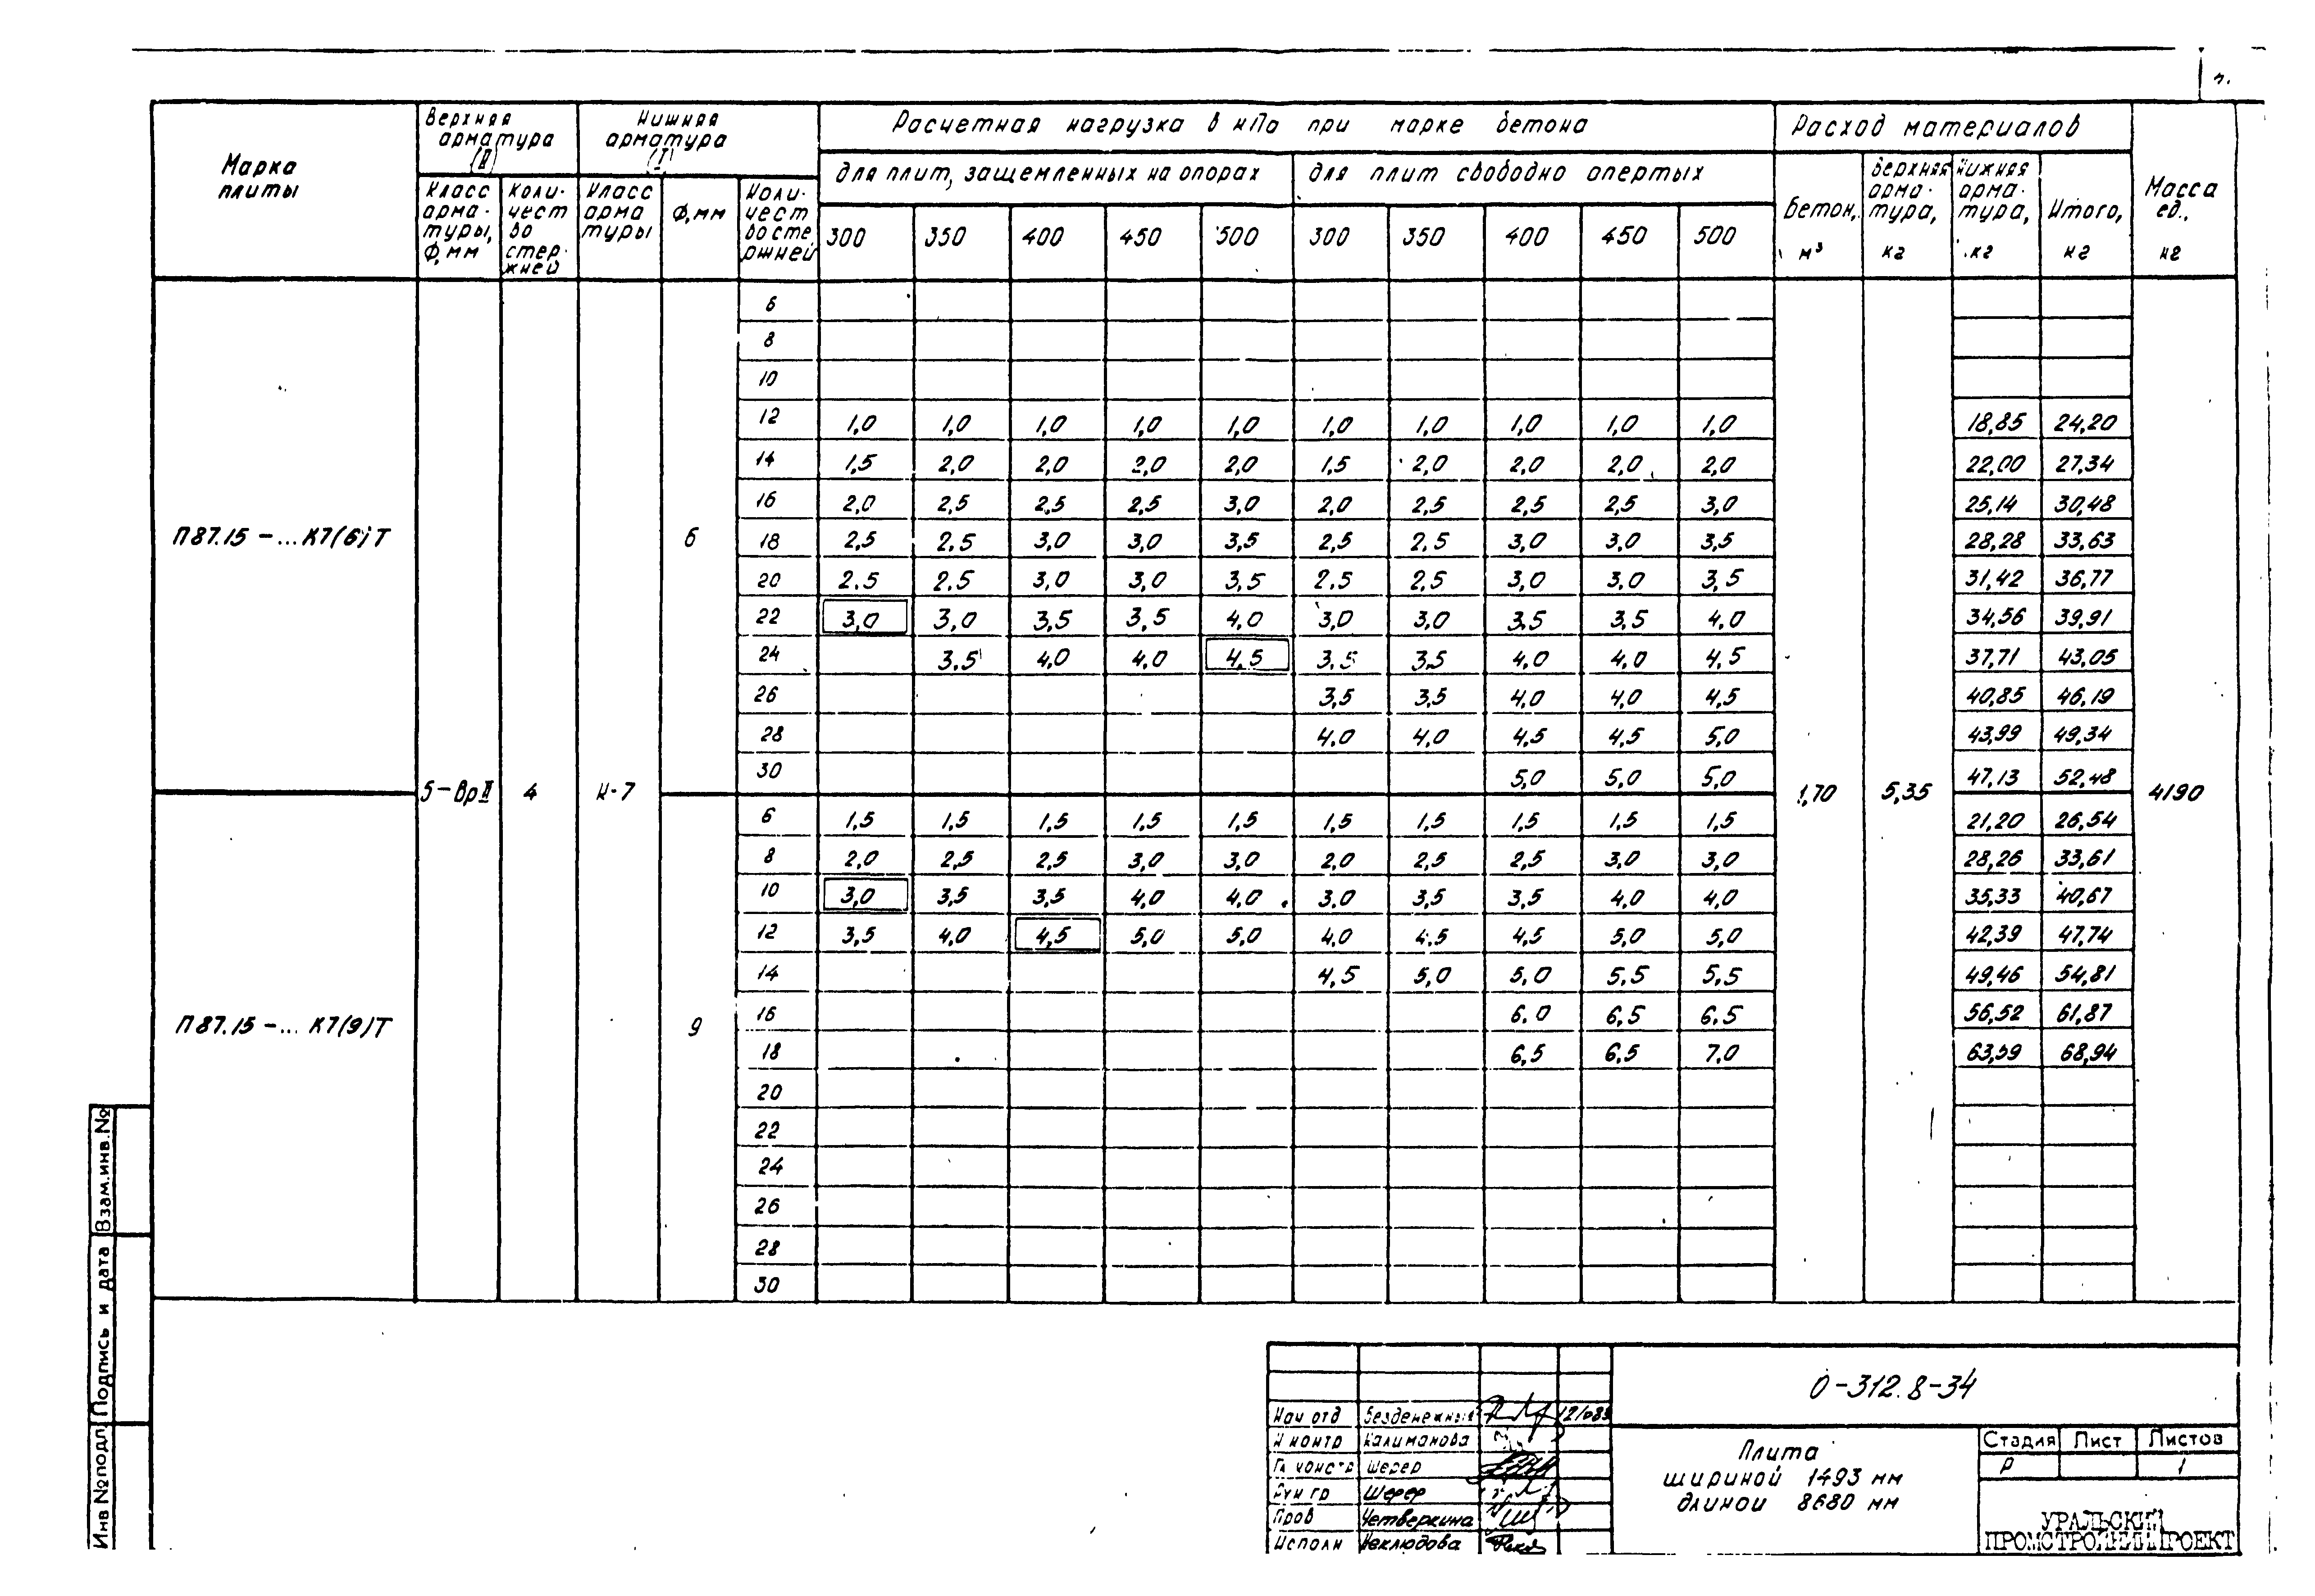 Марка плиты
Верхняя арматура (II)
Нижняя арматура (I)
Расчетная нагрузка в кПа при марке бетона
Расход материалов
Масса ед., кг
для плит, защемленных на опорах
для плит свободно опертых
Класс арма-туры, Ф, мм
Коли-чест во стер-жней
Класс арма туры
Ф, мм
Коли-чест во сте ржней
300 350 400 450 500 300 350 400 450 500
Бетон, м³
Верхняя арма-тура, кг
Нижняя арма-тура, кг
Итого, кг
6
8
10
12 1,0 1,0 1,0 1,0 1,0 1,0 1,0 1,0 1,0 1,0 18,85 24,20
14 1,5 2,0 2,0 2,0 2,0 1,5 2,0 2,0 2,0 2,0 22,00 27,34
16 2,0 2,5 2,5 2,5 3,0 2,0 2,5 2,5 2,5 3,0 25,14 30,48
П87.15 -... К7(6)Т 6
18 2,5 2.5 3,0 3,0 3,5 2,5 2.5 3,0 3,0 3,5 28,28 33,63
20 2.5 2.5 3,0 3,0 3,5 2.5 2,5 3,0 3,0 3,5 31,42 36,77
22 3,0 3,0 3,5 3,5 4,0 3,0 3,0 3,5 3,5 4,0 34,56 39,91
24 3.5 4,0 4,0 4,5 3,5 3,5 4,0 4,0 4,5 37,71 43,05
26 3,5 3,5 4,0 4,0 4,5 40,85 46,19
28 4,0 4,0 4,5 4,5 5,0 43,99 49,34
30 5,0 5,0 5,0 47,13 52,48
5-Вр II 4 К-7 1,70 5,35 4190
6 1,5 1,5 1,5 1,5 1,5 1,5 1,5 1,5 1,5 1,5 21,20 26,54
8 2,0 2,5 2,5 3,0 3,0 2,0 2,5 2,5 3,0 3,0 28,26 33,61
10 3,0 3,5 3,5 4,0 4,0 3,0 3,5 3,5 4,0 4,0 35,33 40,67
12 3,5 4,0 4,5 5,0 5,0 4,0 4.5 4,5 5,0 5,0 42,39 47,74
14 4,5 5,0 5,0 5,5 5,5 49,46 54,81
16 6.0 6,5 6.5 56,52 61,87
П87.15 -... К7(9)Т 9
18 6,5 6,5 7.0 63,59 68,94
20
22
24
26
28
30
Взам.инв.№
Подпись и дата
Инв №подл.
0-312.8-34
Нач отд Безденежный
Н контр Калиманова
Гл констр Шерер
Рук гр Шерер
Пров Четверкина
Исполн Неклюдова
Плита
шириной 1493 мм
длиной 8680 мм
Стадия Лист Листов
Р 1
УРАЛЬСКИЙ
ПРОМСТРОЙНИИПРОЕКТ